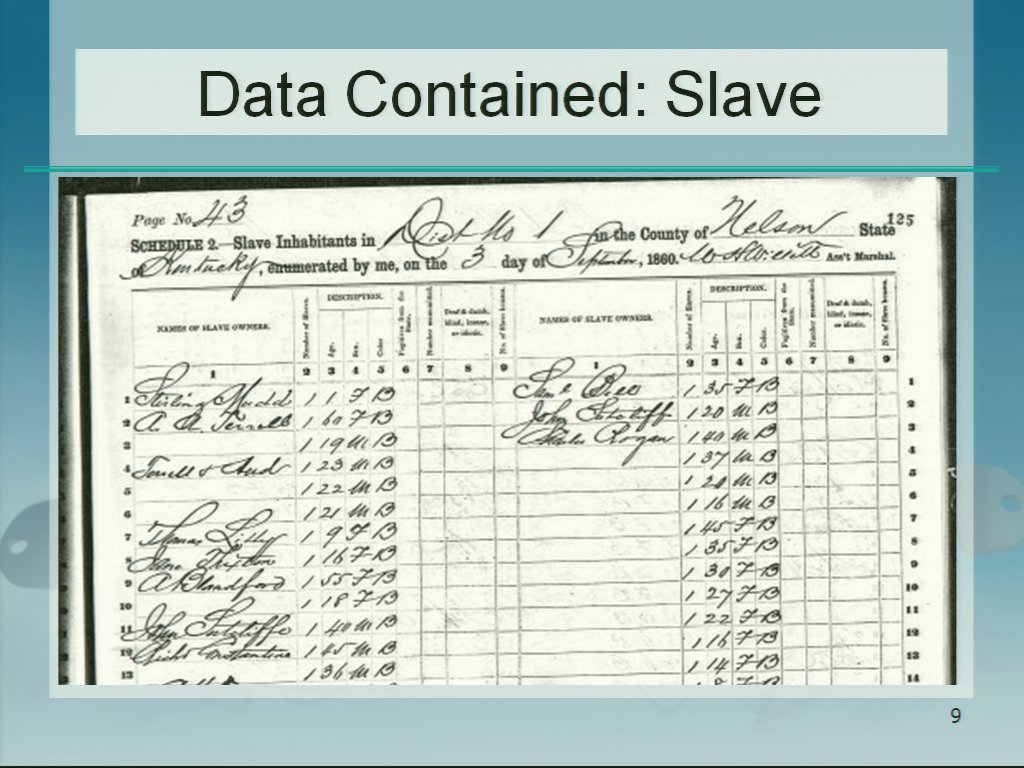 Data Contained: Slave
Page No. 43
125
SCHEDULE 2.—Slave Inhabitants in Dist No 1 in the County of Nelson State
of Kentucky, enumerated by me, on the 3 day of September, 1860. Ass't Marshal.
NAMES OF SLAVE OWNERS. Number of Slaves. DESCRIPTION. Age. Sex. Color. Fugitives from the State. Number manumitted. Deaf & dumb, blind, insane, or idiotic. No. of Slave houses. NAMES OF SLAVE OWNERS. Number of Slaves. DESCRIPTION. Age. Sex. Color. Fugitives from the State. Number manumitted. Deaf & dumb, blind, insane, or idiotic. No. of Slave houses.
1 2 3 4 5 6 7 8 9 1 2 3 4 5 6 7 8 9
1 Mudd 1 1 F B 1 35 F B 1
2 1 60 F B John 1 20 M B 2
3 1 19 M B 1 40 M B 3
4 1 23 M B 1 37 M B 4
5 1 22 M B 1 20 M B 5
6 1 21 M B 1 16 M B 6
7 Thomas 1 9 F B 1 45 F B 7
8 Jane 1 16 F B 1 35 F B 8
9 1 55 F B 1 30 F B 9
10 1 18 F B 1 27 F B 10
11 John 1 40 M B 1 22 F B 11
12 1 45 M B 1 16 F B 12
13 1 36 M B 1 14 F B 13
14
9